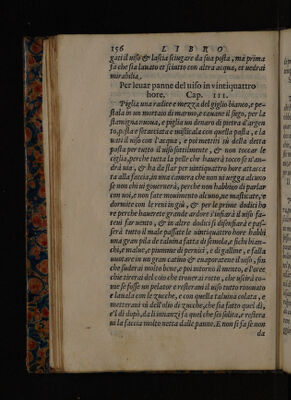 156 LIBRO
gati il viso & lascia sciugar da sua posta, ma prima
fa che sia lauato et sciutto con altra acqua, et uedrai
mirabilia.
Per leuar panne del uiso in vintiquattro
hore. Cap. III.
Piglia una radice e mezza del giglio bianco, e pe-
stala in un mortaio di marmo, e cauane il sugo, per la
stamigna muoua, e piglia un denaro di pietra d'argen
to, pista e setacciata e mesticala con questa posta, e la
uati il uiso con l'acqua, e poi mettiti sù della detta
posta per tutto il uiso sottilmente, & non toccar le
ciglia, perche tutta la pelle che hauerà tocco se n'an-
drà uia, & ha da star per vintiquattro hore attacca
ta alla faccia, in una camera che non ui uegga alcuno
se non chi ui gouernerà, perche non habbiso di parlar
con uoi, e non fate momento alcuno, ne masticate, e
dormite con le reni in giù, & per le prime dodici ho
re perche hauerete grande ardore s'infiarà il uiso fa-
teui far uento, & in altre dodici si disenfiarà e pas-
serà tutto il male passate le vintiquattro hore habbi
una gran pila de talumi fatta di semola, e fichi bian-
chi, e malue, e piumine di pernici, e di galline, e falla
uuotare in un gran catino & euaporateue il uiso, fin
che suderai molto bene, e poi uoltrai il uento, e l'orec
chie tirerai del coio che trouerai rotto, che uscirà co-
me se fosse un pelatoio e resterà ui il uiso tutto rouinato
e lauala con le zucche, e con questa taluina colata, e
metterani sù dell'olio di zucche, che sia fatto quel dì,
e'l dì dopò, da lì innanzi fa quel che sei solita, e restera
ui la faccia molto netta dalle panne. E non si fa se non
da